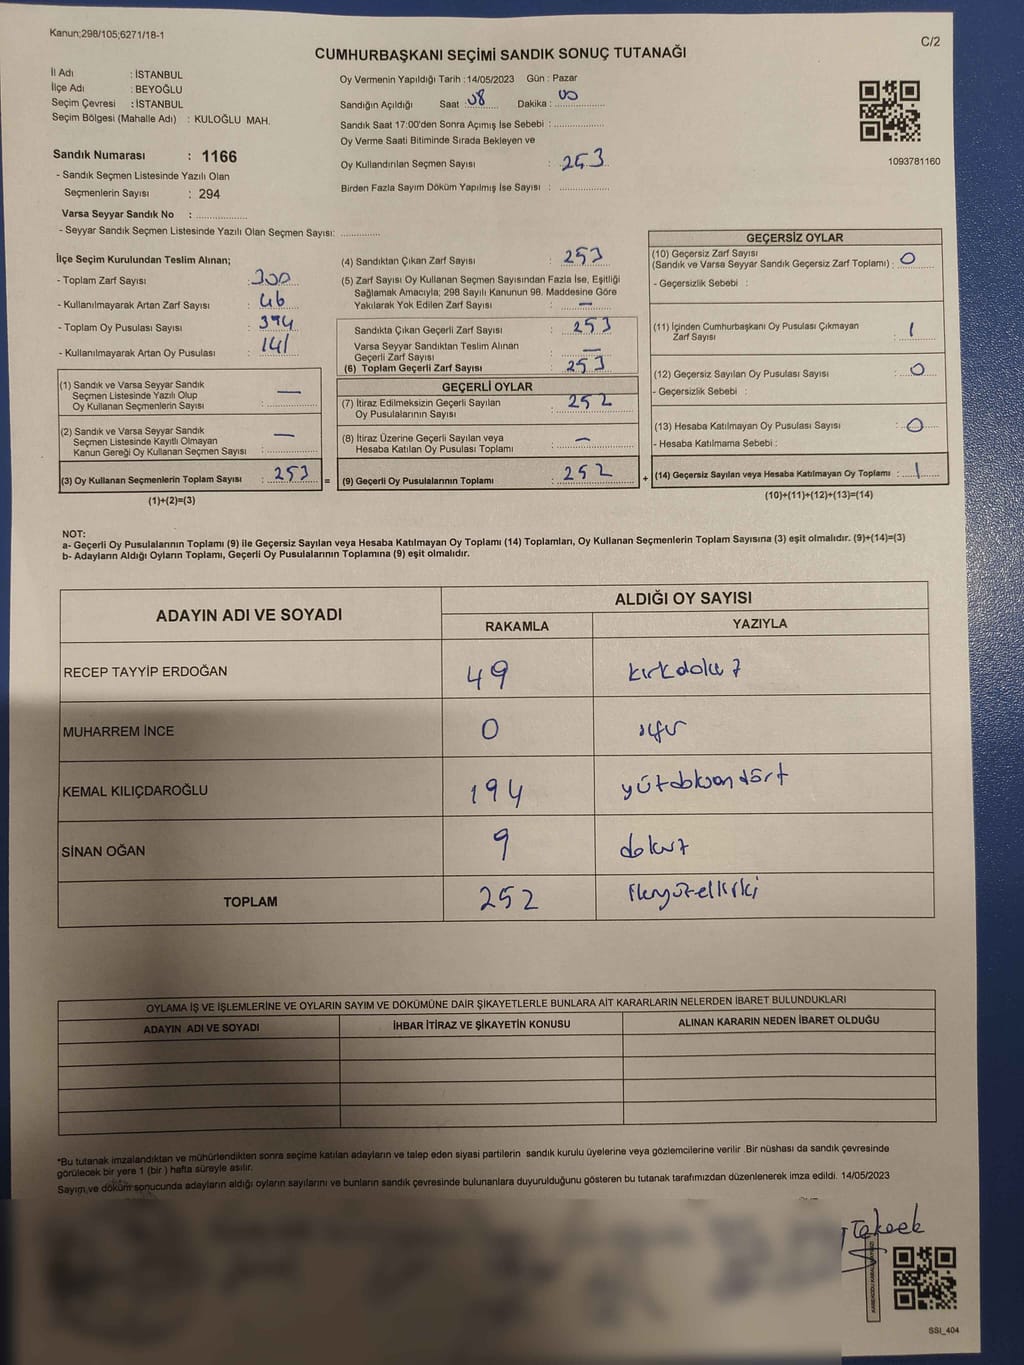 Kanun;298/105;6271/18-1
C/2
CUMHURBAŞKANI SEÇİMİ SANDIK SONUÇ TUTANAĞI
İl Adı : İSTANBUL
İlçe Adı : BEYOĞLU
Seçim Çevresi : İSTANBUL
Seçim Bölgesi (Mahalle Adı) : KULOĞLU MAH.
Sandık Numarası : 1166
- Sandık Seçmen Listesinde Yazılı Olan
Seçmenlerin Sayısı : 294
Varsa Seyyar Sandık No : ................
- Seyyar Sandık Seçmen Listesinde Yazılı Olan Seçmen Sayısı: ............
Oy Vermenin Yapıldığı Tarih : 14/05/2023 Gün : Pazar
Sandığın Açıldığı Saat : 08 Dakika : 00
Sandık Saat 17:00'den Sonra Açımış İse Sebebi : ................
Oy Verme Saati Bitiminde Sırada Bekleyen ve
Oy Kullandırılan Seçmen Sayısı : 253
Birden Fazla Sayım Döküm Yapılmış İse Sayısı : ................
1093781160
İlçe Seçim Kurulundan Teslim Alınan;
- Toplam Zarf Sayısı : 300
- Kullanılmayarak Artan Zarf Sayısı : 46
- Toplam Oy Pusulası Sayısı : 394
- Kullanılmayarak Artan Oy Pusulası : 141
(1) Sandık ve Varsa Seyyar Sandık
Seçmen Listesinde Yazılı Olup
Oy Kullanan Seçmenlerin Sayısı : —
(2) Sandık ve Varsa Seyyar Sandık
Seçmen Listesinde Kayıtlı Olmayan
Kanun Gereği Oy Kullanan Seçmen Sayısı : —
(3) Oy Kullanan Seçmenlerin Toplam Sayısı : 253 =
(1)+(2)=(3)
(4) Sandıktan Çıkan Zarf Sayısı : 253
(5) Zarf Sayısı Oy Kullanan Seçmen Sayısından Fazla İse, Eşitliği
Sağlamak Amacıyla; 298 Sayılı Kanunun 98. Maddesine Göre
Yakılarak Yok Edilen Zarf Sayısı : —
Sandıkta Çıkan Geçerli Zarf Sayısı : 253
Varsa Seyyar Sandıktan Teslim Alınan
Geçerli Zarf Sayısı : —
(6) Toplam Geçerli Zarf Sayısı : 253
GEÇERLİ OYLAR
(7) İtiraz Edilmeksizin Geçerli Sayılan
Oy Pusulalarının Sayısı : 252
(8) İtiraz Üzerine Geçerli Sayılan veya
Hesaba Katılan Oy Pusulası Toplamı : —
(9) Geçerli Oy Pusulalarının Toplamı : 252 +
GEÇERSİZ OYLAR
(10) Geçersiz Zarf Sayısı
(Sandık ve Varsa Seyyar Sandık Geçersiz Zarf Toplamı) : 0
- Geçersizlik Sebebi :
(11) İçinden Cumhurbaşkanı Oy Pusulası Çıkmayan
Zarf Sayısı : 1
(12) Geçersiz Sayılan Oy Pusulası Sayısı : 0
- Geçersizlik Sebebi :
(13) Hesaba Katılmayan Oy Pusulası Sayısı : 0
- Hesaba Katılmama Sebebi :
(14) Geçersiz Sayılan veya Hesaba Katılmayan Oy Toplamı : 1
(10)+(11)+(12)+(13)=(14)
NOT:
a- Geçerli Oy Pusulalarının Toplamı (9) ile Geçersiz Sayılan veya Hesaba Katılmayan Oy Toplamı (14) Toplamları, Oy Kullanan Seçmenlerin Toplam Sayısına (3) eşit olmalıdır. (9)+(14)=(3)
b- Adayların Aldığı Oyların Toplamı, Geçerli Oy Pusulalarının Toplamına (9) eşit olmalıdır.
ADAYIN ADI VE SOYADI
ALDIĞI OY SAYISI
RAKAMLA YAZIYLA
RECEP TAYYİP ERDOĞAN 49 kırkdokuz
MUHARREM İNCE 0 sıfır
KEMAL KILIÇDAROĞLU 194 yüzdoksandört
SİNAN OĞAN 9 dokuz
TOPLAM 252 ikiyüzelliiki
OYLAMA İŞ VE İŞLEMLERİNE VE OYLARIN SAYIM VE DÖKÜMÜNE DAİR ŞİKAYETLERLE BUNLARA AİT KARARLARIN NELERDEN İBARET BULUNDUKLARI
ADAYIN ADI VE SOYADI İHBAR İTİRAZ VE ŞİKAYETİN KONUSU ALINAN KARARIN NEDEN İBARET OLDUĞU
*Bu tutanak imzalandıktan ve mühürlendikten sonra seçime katılan adayların ve talep eden siyasi partilerin sandık kurulu üyelerine veya gözlemcilerine verilir .Bir nüshası da sandık çevresinde
görülecek bir yere 1 (bir ) hafta süreyle asılır.
Sayım ve döküm sonucunda adayların aldığı oyların sayılarını ve bunların sandık çevresinde bulunanlara duyurulduğunu gösteren bu tutanak tarafımızdan düzenlenerek imza edildi. 14/05/2023
SSI_404